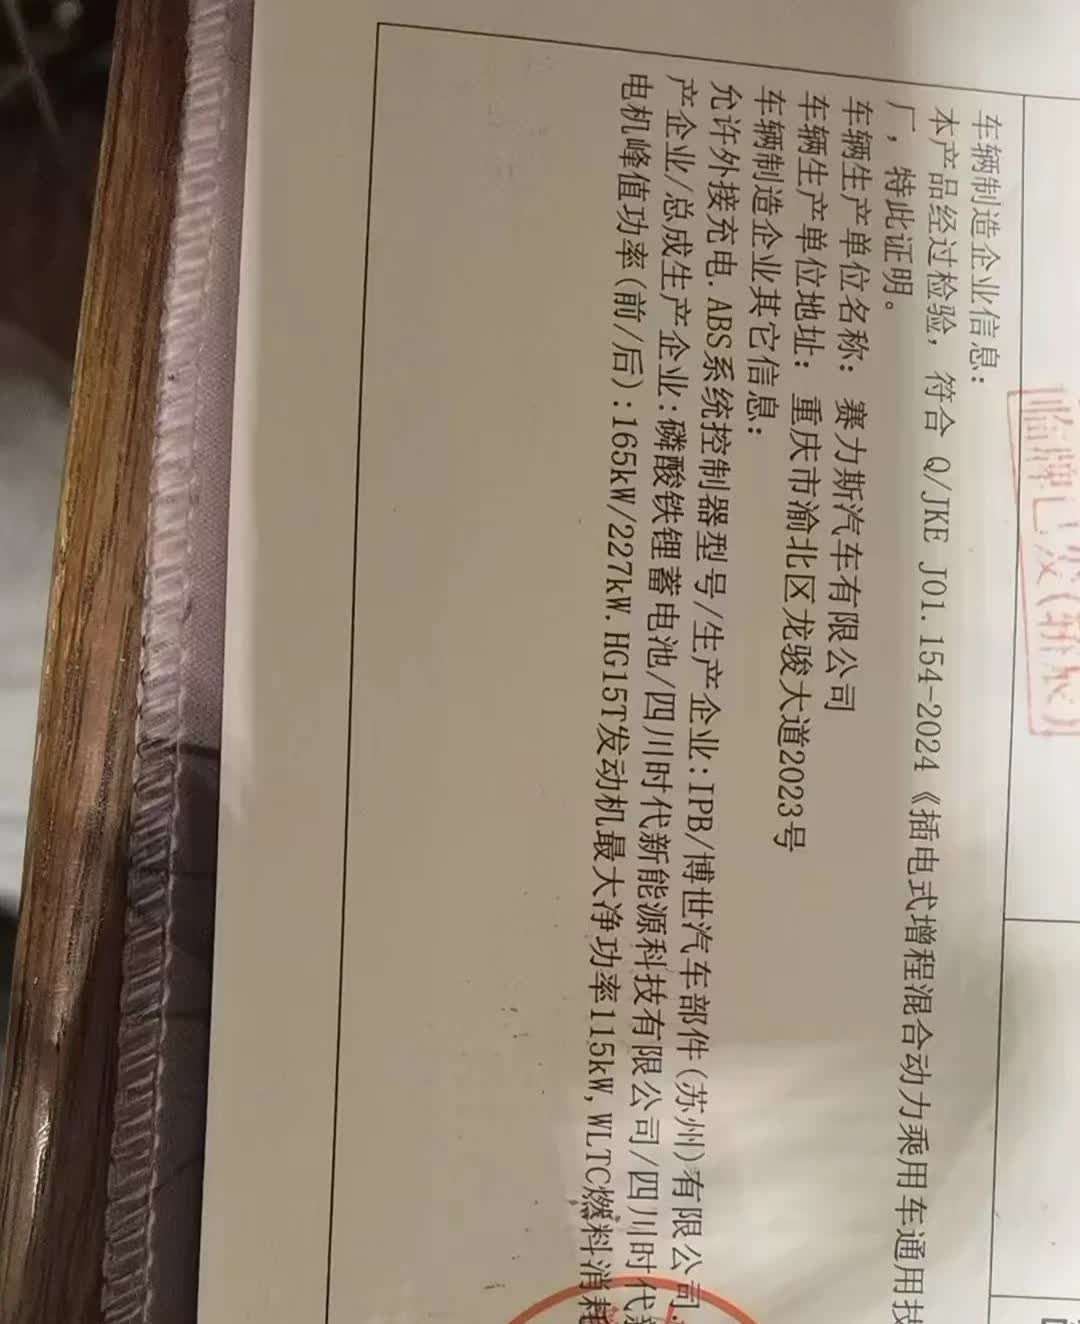 车辆制造企业信息:
本产品经过检验, 符合 Q/JKE J01.154-2024《插电式增程混合动力乘用车通用技
厂, 特此证明。
车辆生产单位名称: 赛力斯汽车有限公司
车辆生产单位地址: 重庆市渝北区龙骏大道2023号
车辆制造企业其它信息:
允许外接充电.ABS系统控制器型号/生产企业:IPB/博世汽车部件(苏州)有限公司.
产企业/总成生产企业:磷酸铁锂蓄电池/四川时代新能源科技有限公司/四川时代新
电机峰值功率(前/后):165kW/227kW.HG15T发动机最大净功率115kW,WLTC燃料消耗
临牌已发